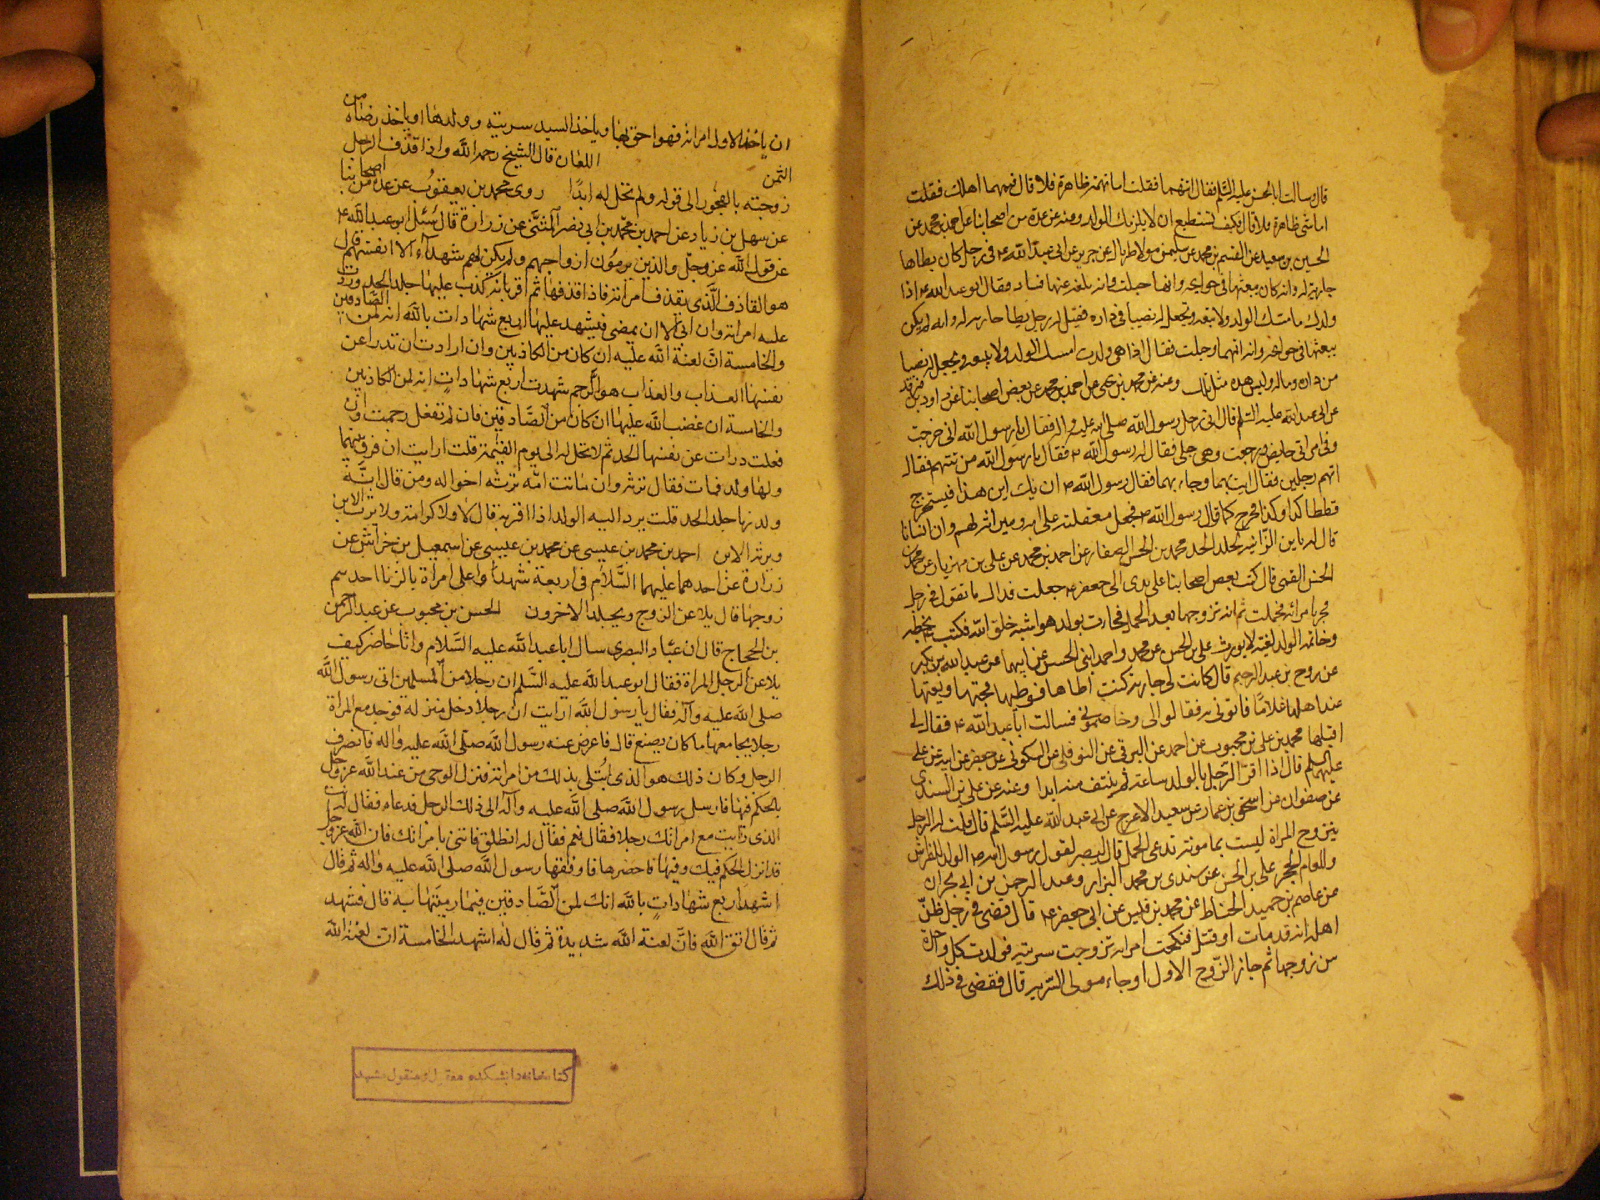 قال وسالت ابا الحسن عليه السلم فقال اتتهمها فقلت اما تهمة ظاهرة فلا قال فيتهمها اهلك فقلت
اما شئ ظاهرة فلا قال فكيف تستطيع ان لا يلزمك الولد وعنه عن عدة من اصحابنا عن احمد بن محمد عن
الحسين بن سعيد عن القسم بن محمد عن سليمن مولا طربال عن حريز عن ابى عبد الله ع فى رجل كان يطا
جارية له وانه كان يبعثها فى حوايجه وانها حبلت وانه بلغه عنها فساد فقال ابو عبد الله ع اذا
ولدت امسك الولد ولا يبعه ويجعل له نصيبا فى داره فقيل له رجل يطا جارية له وانه لم يكن
يبعثها فى حوايجه وانه اتهمها وحبلت فقال اذا هى ولدت امسك الولد ولا يبعه ويجعل له نصيبا
من داره وماله وليس هذه مثل تلك وعنه عن محمد بن يحيى عن احمد بن محمد عن بعض اصحابنا عن داود بن فرقد
عن ابى عبد الله عليه السلم قال اتى رجل رسول الله صلى الله عليه واله فقال يا رسول الله انى خرجت
وامراتى حايض ورجعت وهى حبلى فقال له رسول الله ص فقال يا رسول الله من تتهم فقال
اتهم رجلين فقال ايت بهما فجاء بهما فقال رسول الله ص ان يك ابن هذا فيستخرج
قططا كذا وكذا فخرج كما قال رسول الله ص فجعل معقلته على قوم امه وميراثه لهم وان انسانا
قال له يابن الزانية يجلد الحد محمد بن الحسن الصفار عن احمد بن محمد عن على بن مهزيار عن محمد بن
الحسن القمى قال كتب بعض اصحابنا على يدى الى ابى جعفر ع جعلت فداك ما تقول فى رجل
فجر بامراة فحملت ثم انه تزوجها بعد الحمل فجاءت بولد هو اشبه خلق الله فكتب بخطه
وخاتمه الولد لغية لا يورث على بن الحسن عن محمد واحمد ابنى الحسن عن ابيهما عن عبد الله بن بكير
عن روح بن عبد الرحيم قال كانت لى جارية كنت اطاها فوطيتها فجئتها وبعتها
عند اهلها غلاما فاتونى به فقالوا لى وخاصمونى فسالت ابا عبد الله ع فقال لى
اقبلها محمد بن على بن محبوب عن احمد عن البرقى عن النوفلى عن السكونى عن جعفر عن ابيه عن على
عليهم السلم قال اذا اقر الرجل بالولد ساعة لم ينتف منه ابدا وعنه عن على بن السندى
عن صفوان عن اسحق بن عمار عن سعيد الاعرج عن ابى عبد الله عليه السلم قال قلت له الرجل
يتزوج المراة ليست بمامونة تدعى الحمل قال ليصبر لقول رسول الله ص الولد للفراش
وللعاهر الحجر على بن الحسن عن سندى بن محمد البزاز وعبد الرحمن بن ابى نجران
عن عاصم بن حميد الحناط عن محمد بن قيس عن ابى جعفر ع قال قضى فى رجل ظن
اهله انه قد مات او قتل فنكحت امراته وتزوجت سريته فولدت كل واحدة
من زوجها ثم جاز الزوج الاول او جاء مولى السرية قال فقضى فى ذلك
ان ياخذ الاول امراته فهو احق بها وياخذ السيد سريته وولدها او ياخذ رضاه من
الثمن اللعان قال الشيخ رحمه الله واذا قذف الرجل
زوجته بالفجور الى قوله ولم تحل له ابدا روى محمد بن يعقوب عن عدة من اصحابنا
عن سهل بن زياد عن احمد بن محمد بن ابى نصر المثنى عن زرارة قال سئل ابو عبد الله ع
عن قول الله عز وجل والذين يرمون ازواجهم ولم يكن لهم شهداء الا انفسهم قال
هو القاذف الذى يقذف امراته فاذا قذفها ثم اقر بانه كذب عليها جلد الحد وردت
عليه امراته وان ابى الا ان يمضى فيشهد عليها اربع شهادات بالله انه لمن الصادقين
والخامسة ان لعنة الله عليه ان كان من الكاذبين وان ارادت ان تدرا عن
نفسها العذاب والعذاب هو الرجم شهدت اربع شهادات انه لمن الكاذبين
والخامسة ان غضب الله عليها ان كان من الصادقين فان لم تفعل رجمت وان
فعلت درات عن نفسها الحد ثم لا تحل له الى يوم القيمة قلت ارايت ان فرق بينهما
ولها ولد فمات فقال ترثه وان ماتت امه ترثه اخواله ومن قال انه
ولد زنا جلد الحد قلت يرد اليه الولد اذا اقر به قال لا ولا كرامة ولا يرث الابن
ويرثه الابن احمد بن محمد بن عيسى عن محمد بن عيسى عن اسمعيل بن خراش عن
زرارة عن احدهما عليهما السلام فى اربعة شهدوا على امراة بالزنا احدهم
زوجها قال يلاعن الزوج ويجلد الاخرون الحسن بن محبوب عن عبد الرحمن
بن الحجاج قال ان عباد البصرى سال ابا عبد الله عليه السلام وانا حاضر كيف
يلاعن الرجل المراة فقال ابو عبد الله عليه السلم ان رجلا من المسلمين اتى رسول الله
صلى الله عليه وآله فقال يا رسول الله ارايت ان رجلا دخل منزله فوجد مع المراة
رجلا يجامعها ما كان يصنع قال فاعرض عنه رسول الله صلى الله عليه واله فانصرف
الرجل وكان ذلك هو الذى ابتلى بذلك من امراته فنزل الوحى من عند الله عز وجل
بالحكم فيها فارسل رسول الله صلى الله عليه وآله الى ذلك الرجل فدعاه فقال انت
الذى رايت مع امراتك رجلا فقال نعم فقال له انطلق فاتنى بامراتك فان الله عز وجل
قد انزل الحكم فيك وفيها فاحضرها فاوقفها رسول الله صلى الله عليه واله ثم قال
اشهد اربع شهادات بالله انك لمن الصادقين فيما رميتها به قال فشهد
ثم قال اتق الله فان لعنة الله شديدة ثم قال له اشهد الخامسة ان لعنة الله
كتابخانه دانشكده معقول و منقول مشهد